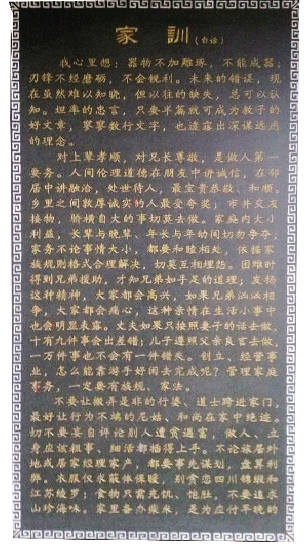 家 训（白话）
我心里想：器物不加雕琢，不能成器；
刃锋不经磨砺，不会锐利。未来的错误，现
在虽然难以知晓，但以往的缺失，总可以认
知。坦率的忠言，只要半篇就可成为教子的
好文章，寥寥数行文字，也流露出深谋远虑
的理念。
对上辈孝顺，对兄长尊敬，是做人第一
要务。人间伦理道德在朋友中讲诚信，在邻
居中讲融洽，处世待人，最宝贵恭敬、和顺，
乡里之间敦厚诚笑的人最受夸奖；市井交友
接物，骄横自大的事切莫去做。家庭内大小
利益，长辈与晚辈，年长与年幼间切勿争夺。
家务不论事情大小，都要和睦相处，依据家
族规则格式合理解决，切莫互相埋怨。困难时
得到兄弟援助，才知兄弟如手足的道理；发扬
这种精神，大家都会高兴，如果兄弟汹汹相
争，大家都会痛心，这种亲情在生活小事中
也会明显表露。丈夫如果只按照妻子的话去做，
十有九件事会出差错；儿子遵照父亲良言去做，
一万件事也不会有一件错失。创立、经营事
业，怎么能靠游手好闲去完成呢？管理家庭
事务，一定要有族规、家法。
不要让搬弄是非的行婆、道士跨近家门，
最好让行为不端的尼姑、和尚在家中绝迹。
切不要妄自评论别人遭贫遇富，做人、立
身应该粗事、细活都插得上手。不论旅居外
地或居家经理家产，都要事先谋划、盘算利
弊。衣服仅求蔽体保暖，别贪恋四川锦缎和
江苏绫罗；食物只需充饥、饱肚，不要追求
山珍海味，家里备办柴米，是为应付早晚的